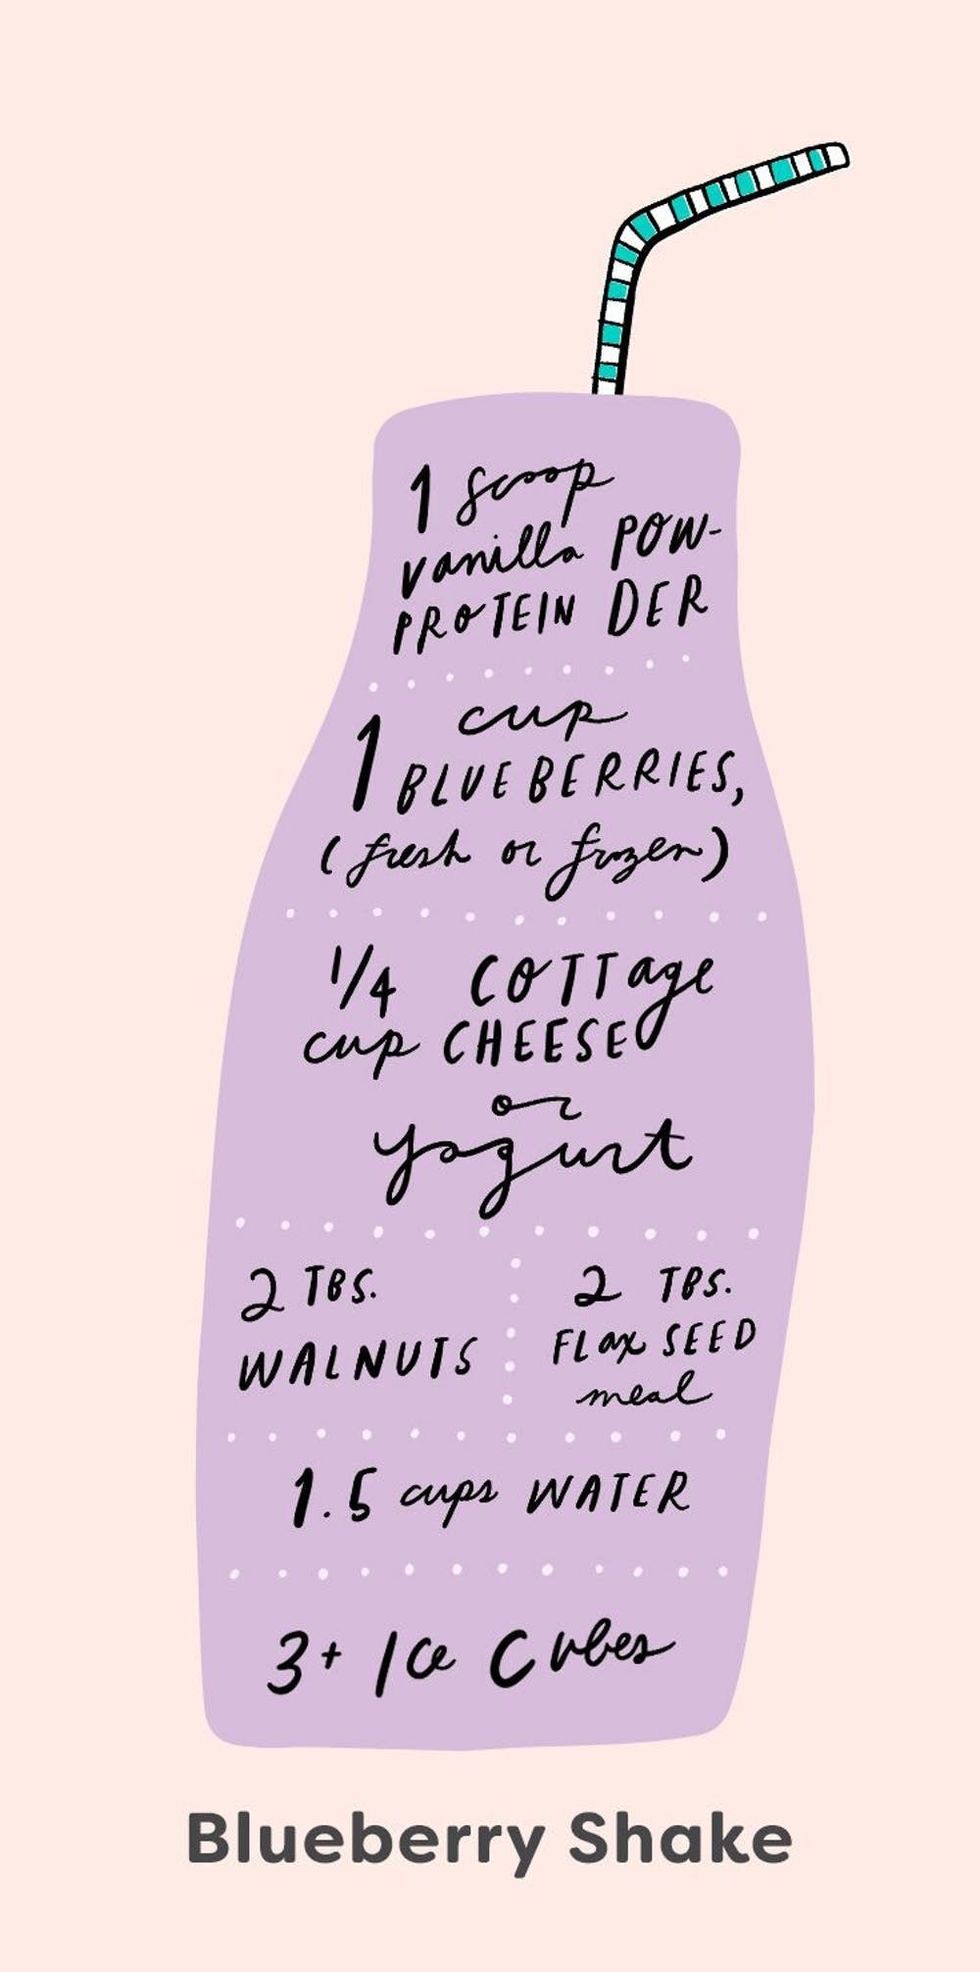 1 scoop
vanilla POW-
PROTEIN DER
1 cup
BLUEBERRIES,
(fresh or frozen)
1/4 COTTage
cup CHEESE
or
yogurt
2 TBS.
WALNUTS
2 TBS.
FLax SEED
meal
1.5 cups WATER
3+ Ice Cubes
Blueberry Shake